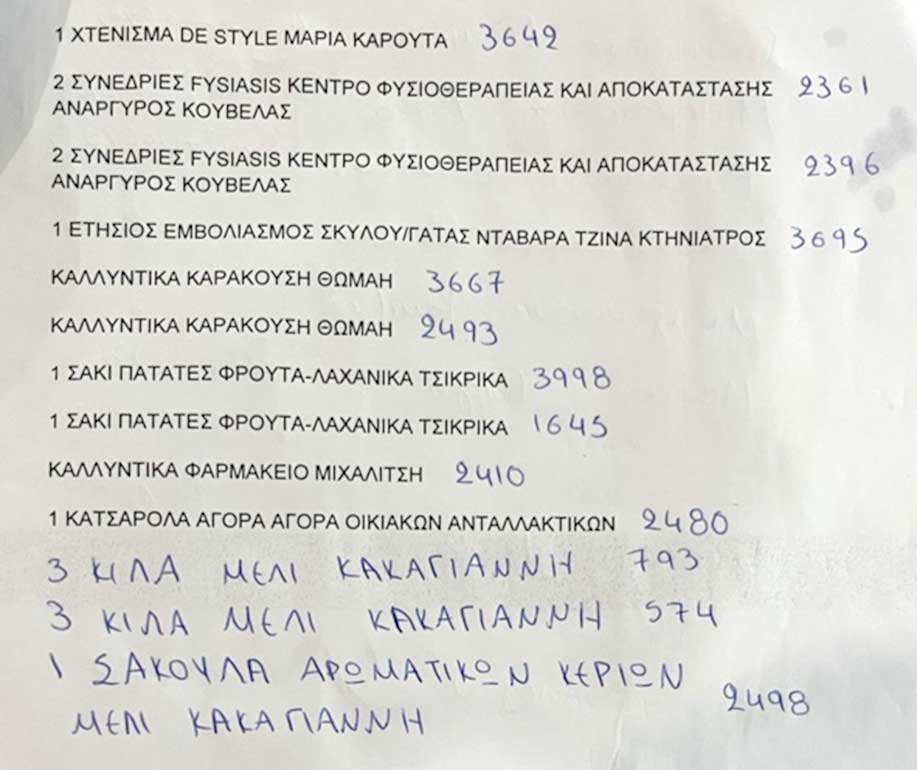 1 ΧΤΕΝΙΣΜΑ DE STYLE ΜΑΡΙΑ ΚΑΡΟΥΤΑ 3642
2 ΣΥΝΕΔΡΙΕΣ FYSIASIS ΚΕΝΤΡΟ ΦΥΣΙΟΘΕΡΑΠΕΙΑΣ ΚΑΙ ΑΠΟΚΑΤΑΣΤΑΣΗΣ 2361
ΑΝΑΡΓΥΡΟΣ ΚΟΥΒΕΛΑΣ
2 ΣΥΝΕΔΡΙΕΣ FYSIASIS ΚΕΝΤΡΟ ΦΥΣΙΟΘΕΡΑΠΕΙΑΣ ΚΑΙ ΑΠΟΚΑΤΑΣΤΑΣΗΣ 2396
ΑΝΑΡΓΥΡΟΣ ΚΟΥΒΕΛΑΣ
1 ΕΤΗΣΙΟΣ ΕΜΒΟΛΙΑΣΜΟΣ ΣΚΥΛΟΥ/ΓΑΤΑΣ ΝΤΑΒΑΡΑ ΤΖΙΝΑ ΚΤΗΝΙΑΤΡΟΣ 3695
ΚΑΛΛΥΝΤΙΚΑ ΚΑΡΑΚΟΥΣΗ ΘΩΜΑΗ 3667
ΚΑΛΛΥΝΤΙΚΑ ΚΑΡΑΚΟΥΣΗ ΘΩΜΑΗ 2493
1 ΣΑΚΙ ΠΑΤΑΤΕΣ ΦΡΟΥΤΑ-ΛΑΧΑΝΙΚΑ ΤΣΙΚΡΙΚΑ 3998
1 ΣΑΚΙ ΠΑΤΑΤΕΣ ΦΡΟΥΤΑ-ΛΑΧΑΝΙΚΑ ΤΣΙΚΡΙΚΑ 1645
ΚΑΛΛΥΝΤΙΚΑ ΦΑΡΜΑΚΕΙΟ ΜΙΧΑΛΙΤΣΗ 2410
1 ΚΑΤΣΑΡΟΛΑ ΑΓΟΡΑ ΑΓΟΡΑ ΟΙΚΙΑΚΩΝ ΑΝΤΑΛΛΑΚΤΙΚΩΝ 2480
3 ΚΙΛΑ ΜΕΛΙ ΚΑΚΑΓΙΑΝΝΗ 793
3 ΚΙΛΑ ΜΕΛΙ ΚΑΚΑΓΙΑΝΝΗ 574
1 ΣΑΚΟΥΛΑ ΑΡΩΜΑΤΙΚΩΝ ΚΕΡΙΩΝ
ΜΕΛΙ ΚΑΚΑΓΙΑΝΝΗ 2498